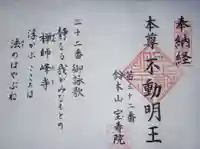 奉納経
本尊不動明王
第三十二番
鈴木山宝寿院
三十二番御詠歌
静かなる我がみなもとの
禅師峰寺
浮かぶこころは
法のはやぶね